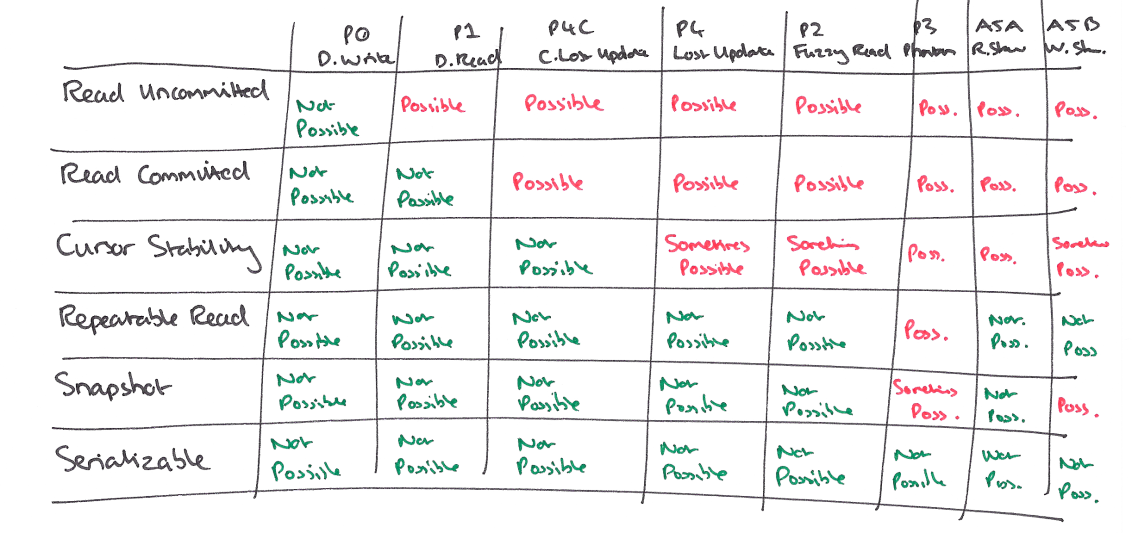 P0 P1 P4C P4 P2 P3 A5A A5B
D.Write D.Read C.Lost Update Lost Update Fuzzy Read Phantom R.Skew W.Sk.
Read Uncommitted Not Possible Possible Possible Possible Possible Poss. Poss. Poss.
Read Committed Not Possible Not Possible Possible Possible Possible Poss. Poss. Poss.
Cursor Stability Not Possible Not Possible Not Possible Sometimes Possible Sometimes Possible Poss. Poss. Sometimes Poss.
Repeatable Read Not Possible Not Possible Not Possible Not Possible Not Possible Poss. Not. Poss. Not Poss
Snapshot Not Possible Not Possible Not Possible Not Possible Not Possible Sometimes Poss. Not Poss. Poss.
Serializable Not Possible Not Possible Not Possible Not Possible Not Possible Not Possible Not Poss. Not Poss.